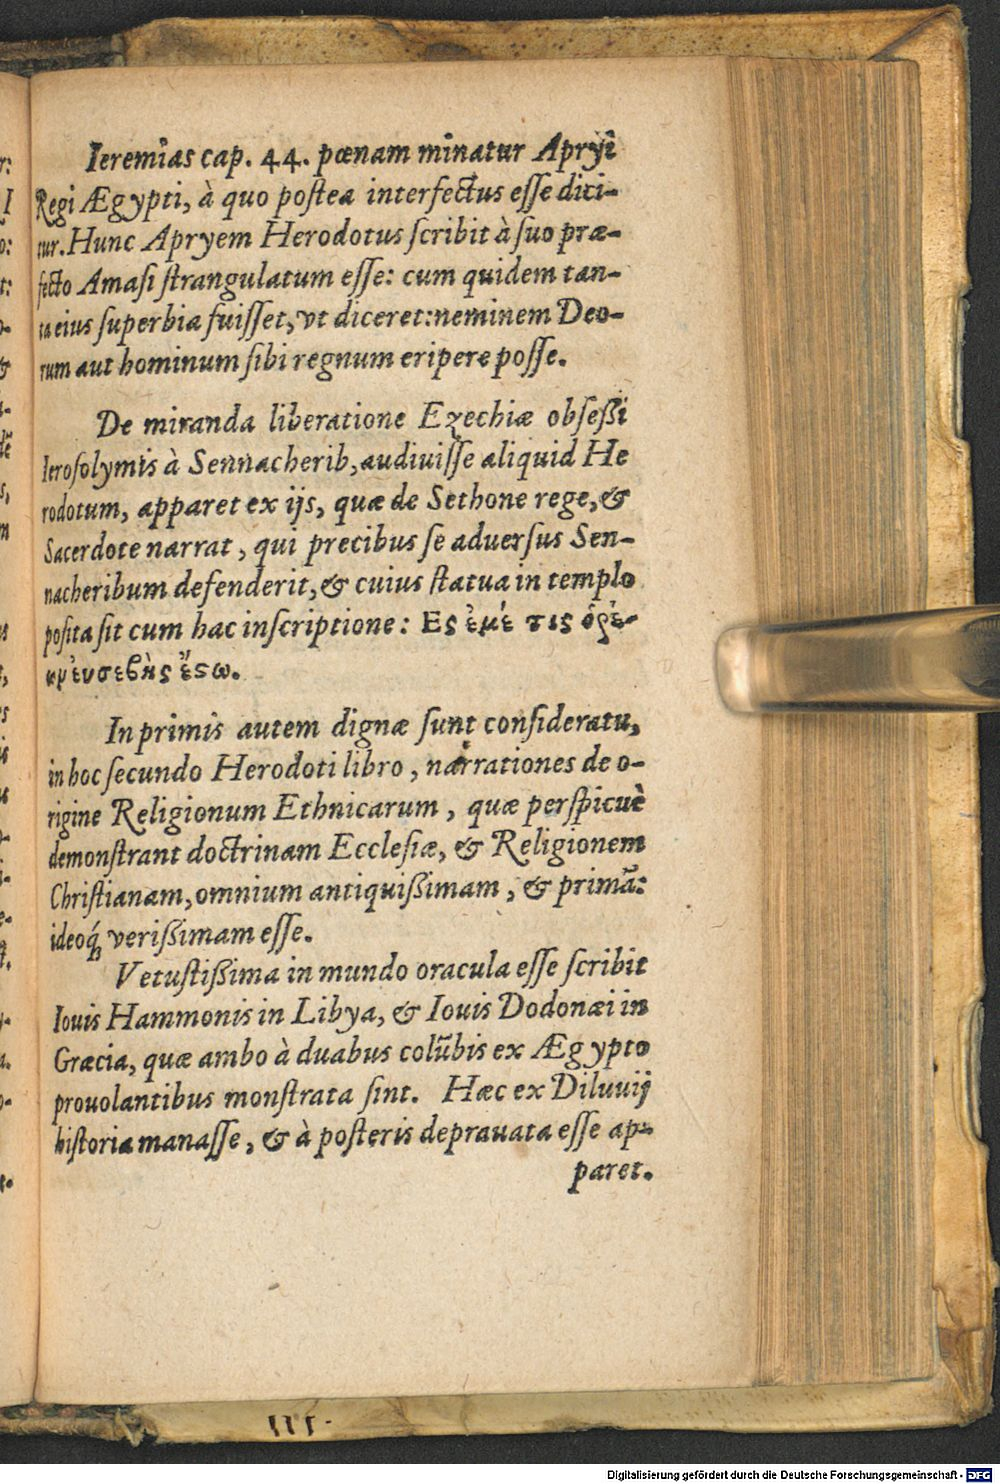 Ieremias cap. 44. pœnam minatur Apryi
Regi Ægypti, à quo postea interfectus esse dici-
tur. Hunc Apryem Herodotus scribit à suo præ-
fecto Amasi strangulatum esse: cum quidem tan-
ta eius superbia fuisset, vt diceret: neminem Deo-
rum aut hominum sibi regnum eripere posse.
De miranda liberatione Ezechiæ obsessi
Ierosolymis à Sennacherib, audiuisse aliquid He
rodotum, apparet ex ijs, quæ de Sethone rege, &
Sacerdote narrat, qui precibus se aduersus Sen-
nacheribum defenderit, & cuius statua in templo
posita sit cum hac inscriptione: Ες ἐμέ τις ὁρέ-
ἐυσεβὴς ἔςω.
In primis autem dignæ sunt consideratu,
in hoc secundo Herodoti libro, narrationes de o-
rigine Religionum Ethnicarum, quæ perspicuè
demonstrant doctrinam Ecclesiæ, & Religionem
Christianam, omnium antiquissimam, & primā:
ideoq́; verissimam esse.
Vetustissima in mundo oracula esse scribit
Iouis Hammonis in Libya, & Iouis Dodonæi in
Græcia, quæ ambo à duabus colūbis ex Ægypto
prouolantibus monstrata sint. Hæc ex Diluuij
historia manasse, & à posteris deprauata esse ap-
paret.
Digitalisierung gefördert durch die Deutsche Forschungsgemeinschaft - DFG